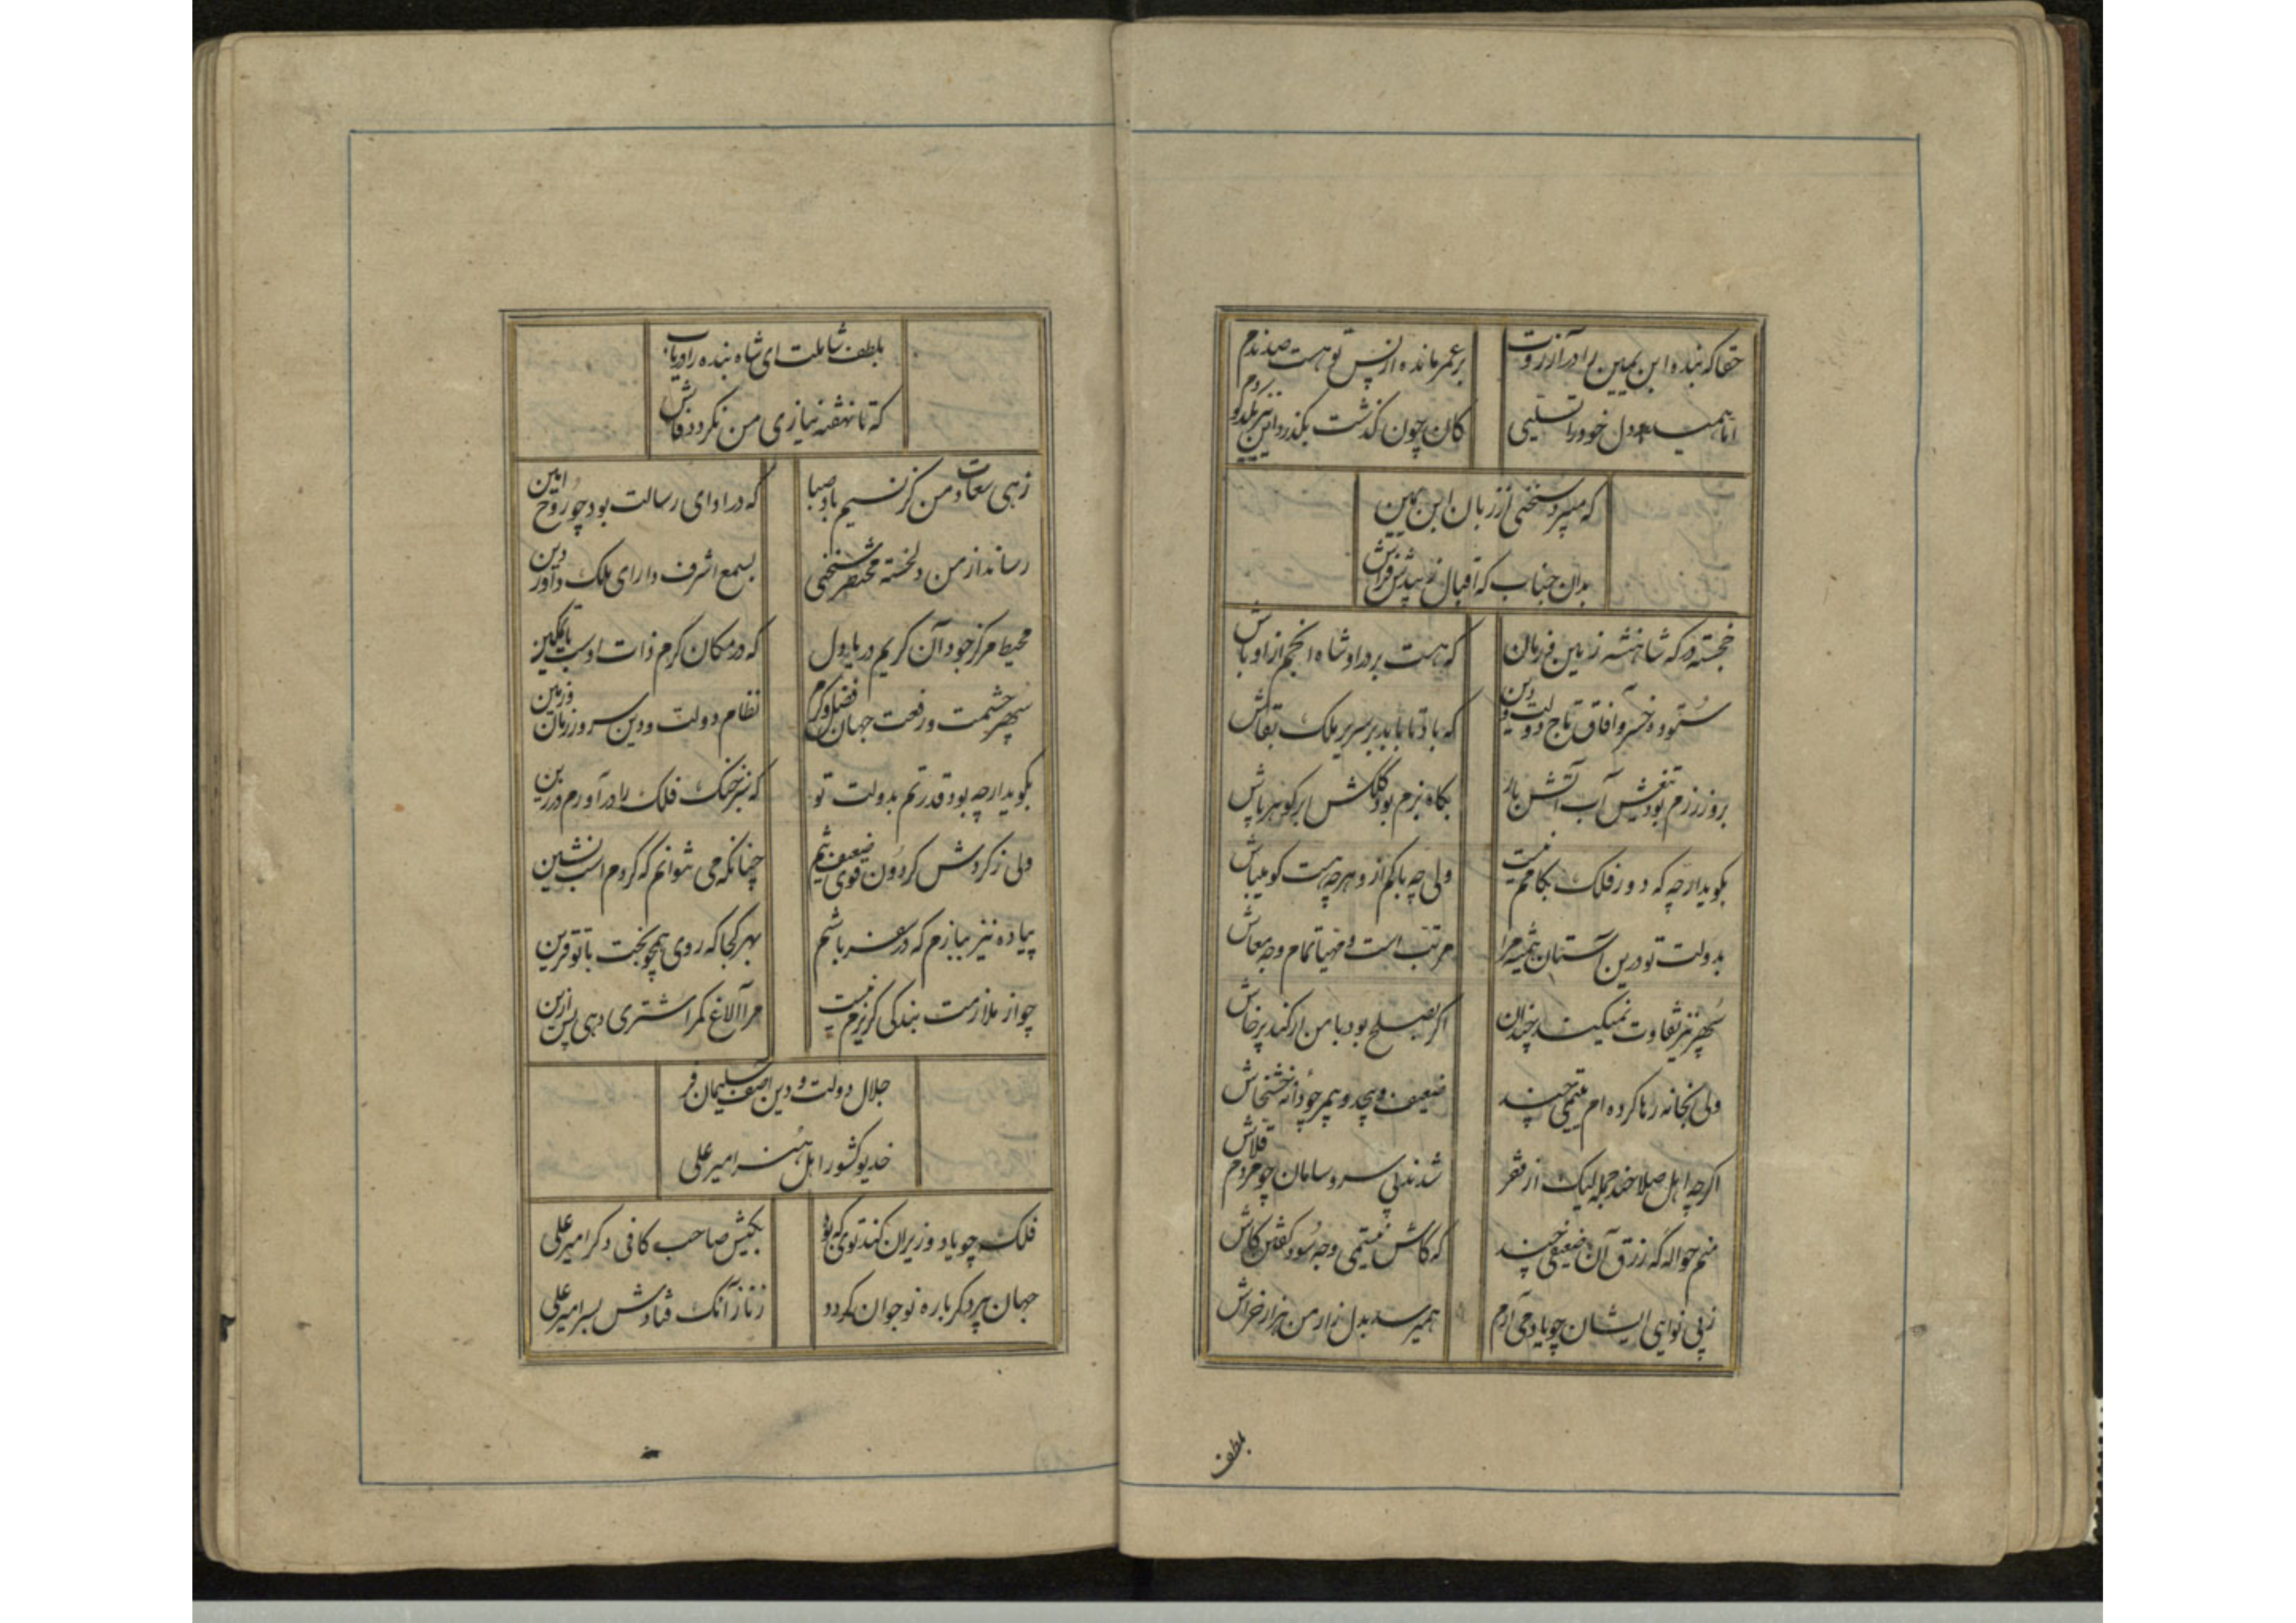 حقا که بنده ابن یمین را در آرزوت
بر عمر مانده از پس تو هست صد ندم
اما همیدهد دل خود را تسلیی
کان چون گذشت بگذرد این نیز بلکه دم
که میبرد سخنی از زبان ابن یمین
بدان جناب که اقبال زیبدش فراش
خجسته درگه شاهنشه زمین و زمان
که هست بر در او شاه انجم از اوباش
ستوده خسرو آفاق تاج دولت و دین
که باد تا بابد بر سریر ملک بقاش
بروز رزم بود تیغش آب آتش بار
بگاه بزم بود کلکش ابر گوهر پاش
بگوید ارچه که دور فلک بکامم نیست
ولی چه باکم ازو هرچه هست گو میباش
بدولت تو درین آستان همیشه مرا
مرتب است و مهیا تمام وجه معاش
سپهر نیز تفاوت نمیکند چندان
اگر بصلح بود با من ار کند پرخاش
ولی بخانه رها کرده ام یتیمی چند
ضعیف و بیحد و بیمر چو دانه خشخاش
اگرچه اهل صلاحند جمله لیک از فقر
شدند بی سر و سامان چو مردم قلاش
منم حواله که رزق آن ضعیفی چند
که کاش نیستمی وجه سود گفتن کاش
ز بی نوایی ایشان چو یاد می آرم
همیرسد بدل زار من هزار خراش
بلطف
بلطف شاملت ای شاه بنده را دریاب
که تا نهفته نیازی من نگردد فاش
زهی سعادت من گر نسیم باد صبا
که در ادای رسالت بود چو روح امین
رساند از من دلخسته مختصر سخنی
بسمع اشرف دارای ملک و داور دین
محیط مرکز جود آن کریم دریا دل
که در مکان کرم ذات اوست با تمکین
سپهر حشمت و رفعت جهان فضل و کرم
نظام دولت و دین سرور زمان و زمین
بگوید ارچه بود قدرتم بدولت تو
که سبز خنگ فلک را در آورم در زین
ولی ز گردش گردون قوی ضعیف تنم
چنانکه می نتوانم که گردم اسب نشین
پیاده نیز نیازم که در سفر باشم
بهر کجا که روی همچو بخت با تو قرین
چو از ملازمت بندگی گریزم نیست
مرا الاغ مگر اشتری دهی پس ازین
جلال دولت و دین آصف سلیمان فر
خدیو کشور اهل هنر امیر علی
فلک چو یاد وزیران کند توی که بود
بکیش صاحب کافی دگر امیر علی
جهان پیر دگر باره نوجوان گردد
ز ناز آنک فتادش بسر امیر علی